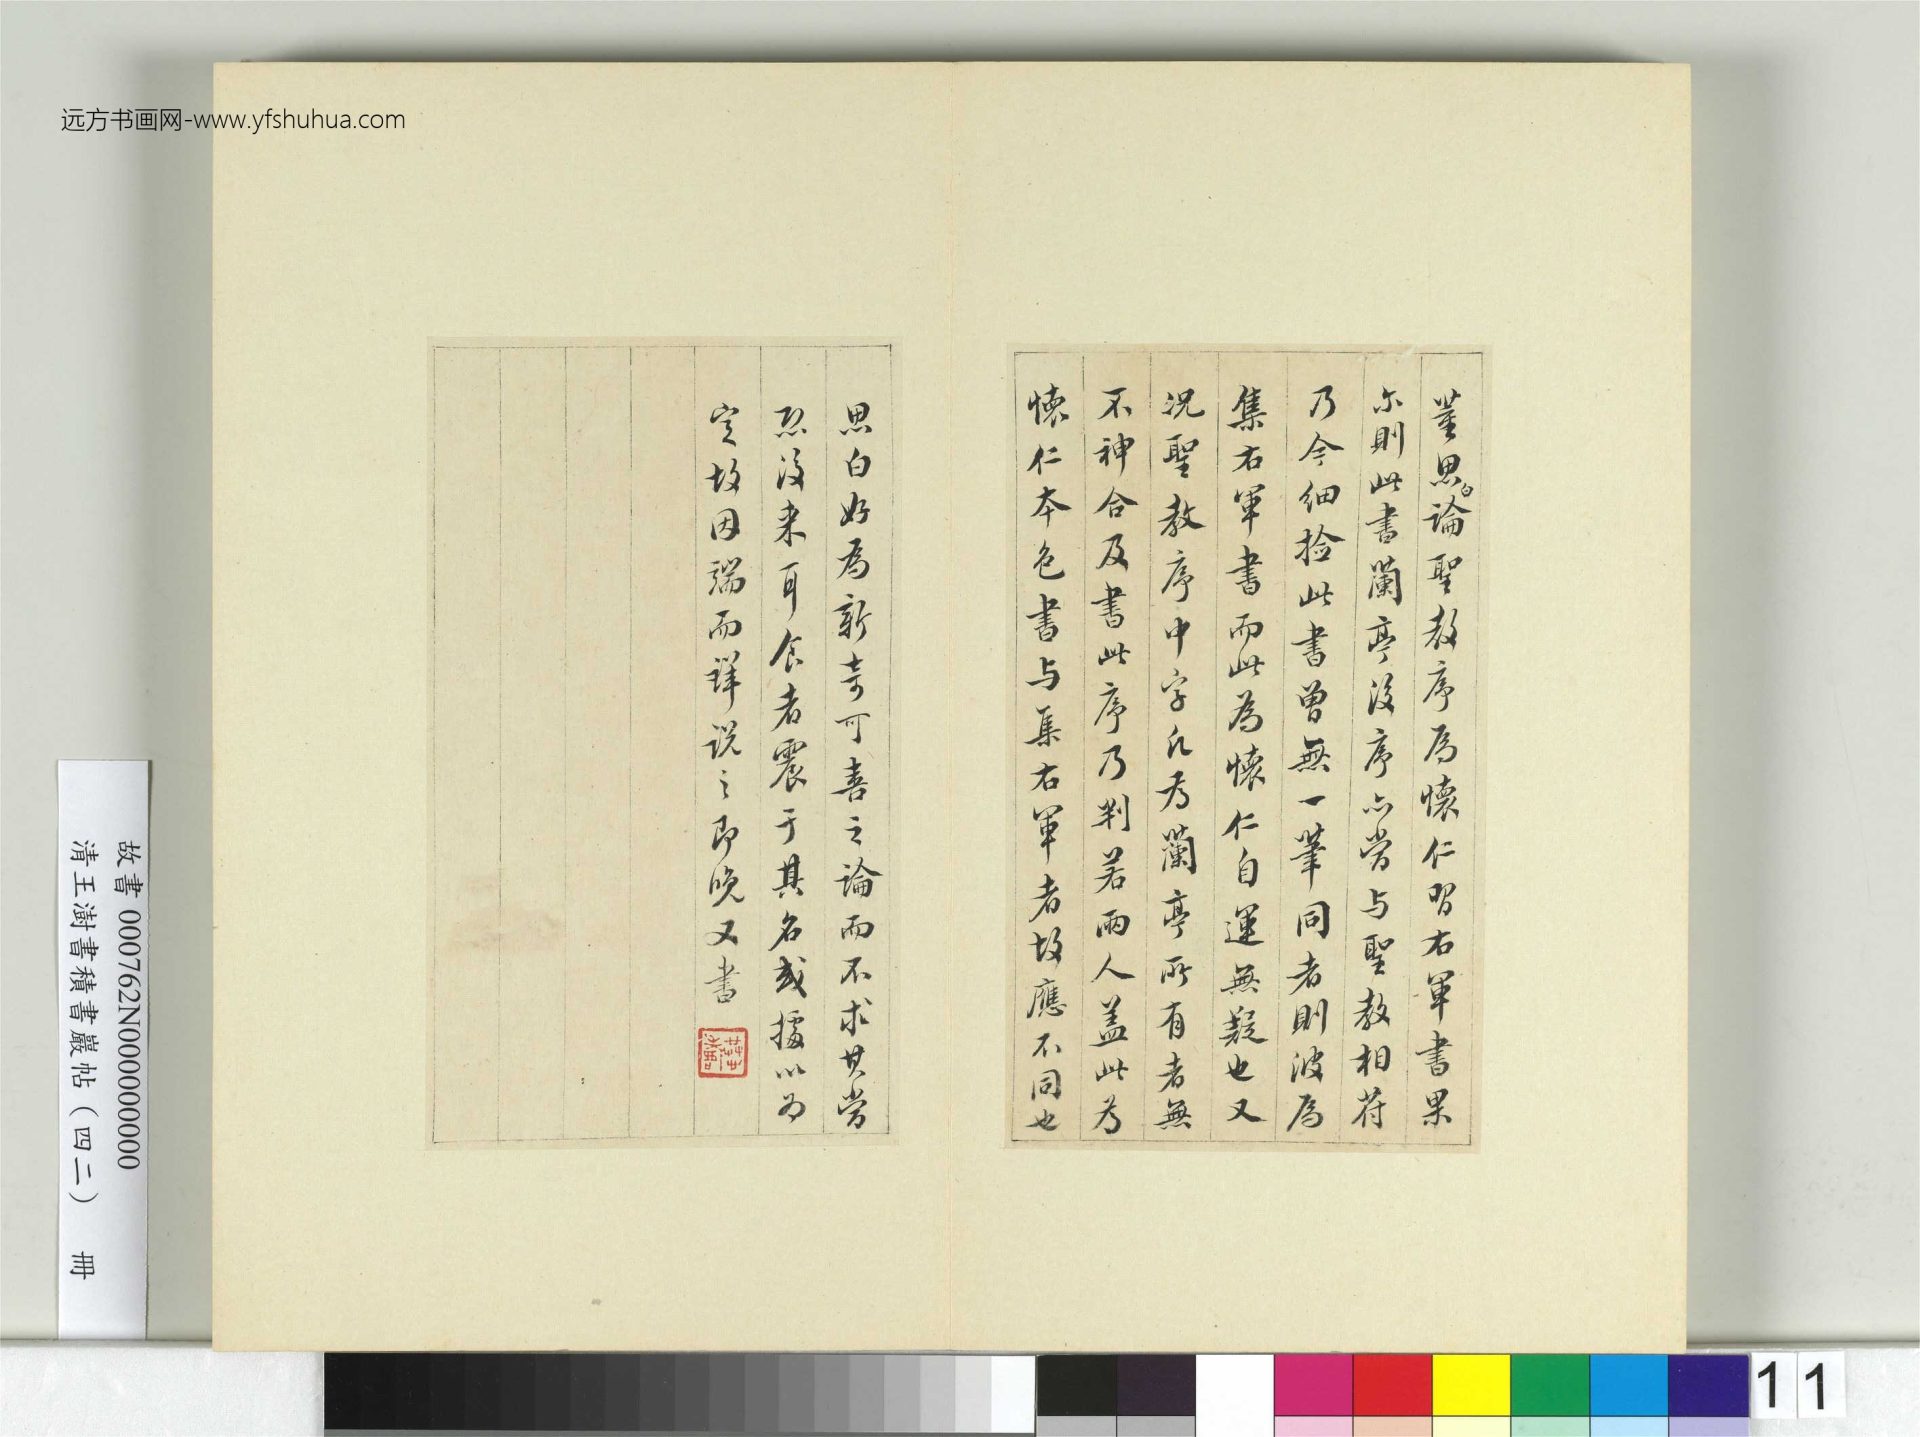 远方书画网-www.yfshuhua.com
董思白論聖教序為懷仁習右軍書果
尒則此書蘭亭後序亦當与聖教相符
乃今細撿此書曾無一筆同者則波為
集右軍書而此為懷仁自運無疑也又
況聖教序中字凡為蘭亭所有者無
不神合及書此序乃判若兩人蓋此為
懷仁本色書与集右軍者故應不同也
思白好為新奇可喜之論而不求其當
恐後来耳食者震于其名或據以为
定故因論而詳說之即晚又書
故書 000762N000000000
清王澍書積書巖帖(四二) 冊
11